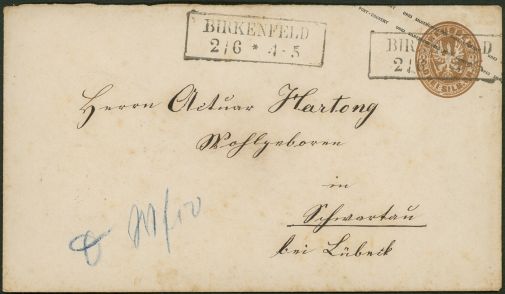 BIRKENFELD
2/6 * 4-5
BIRKENFELD
Herrn Actuar Hartong
Wohlgeboren
in
Schwartau
bei Lübeck